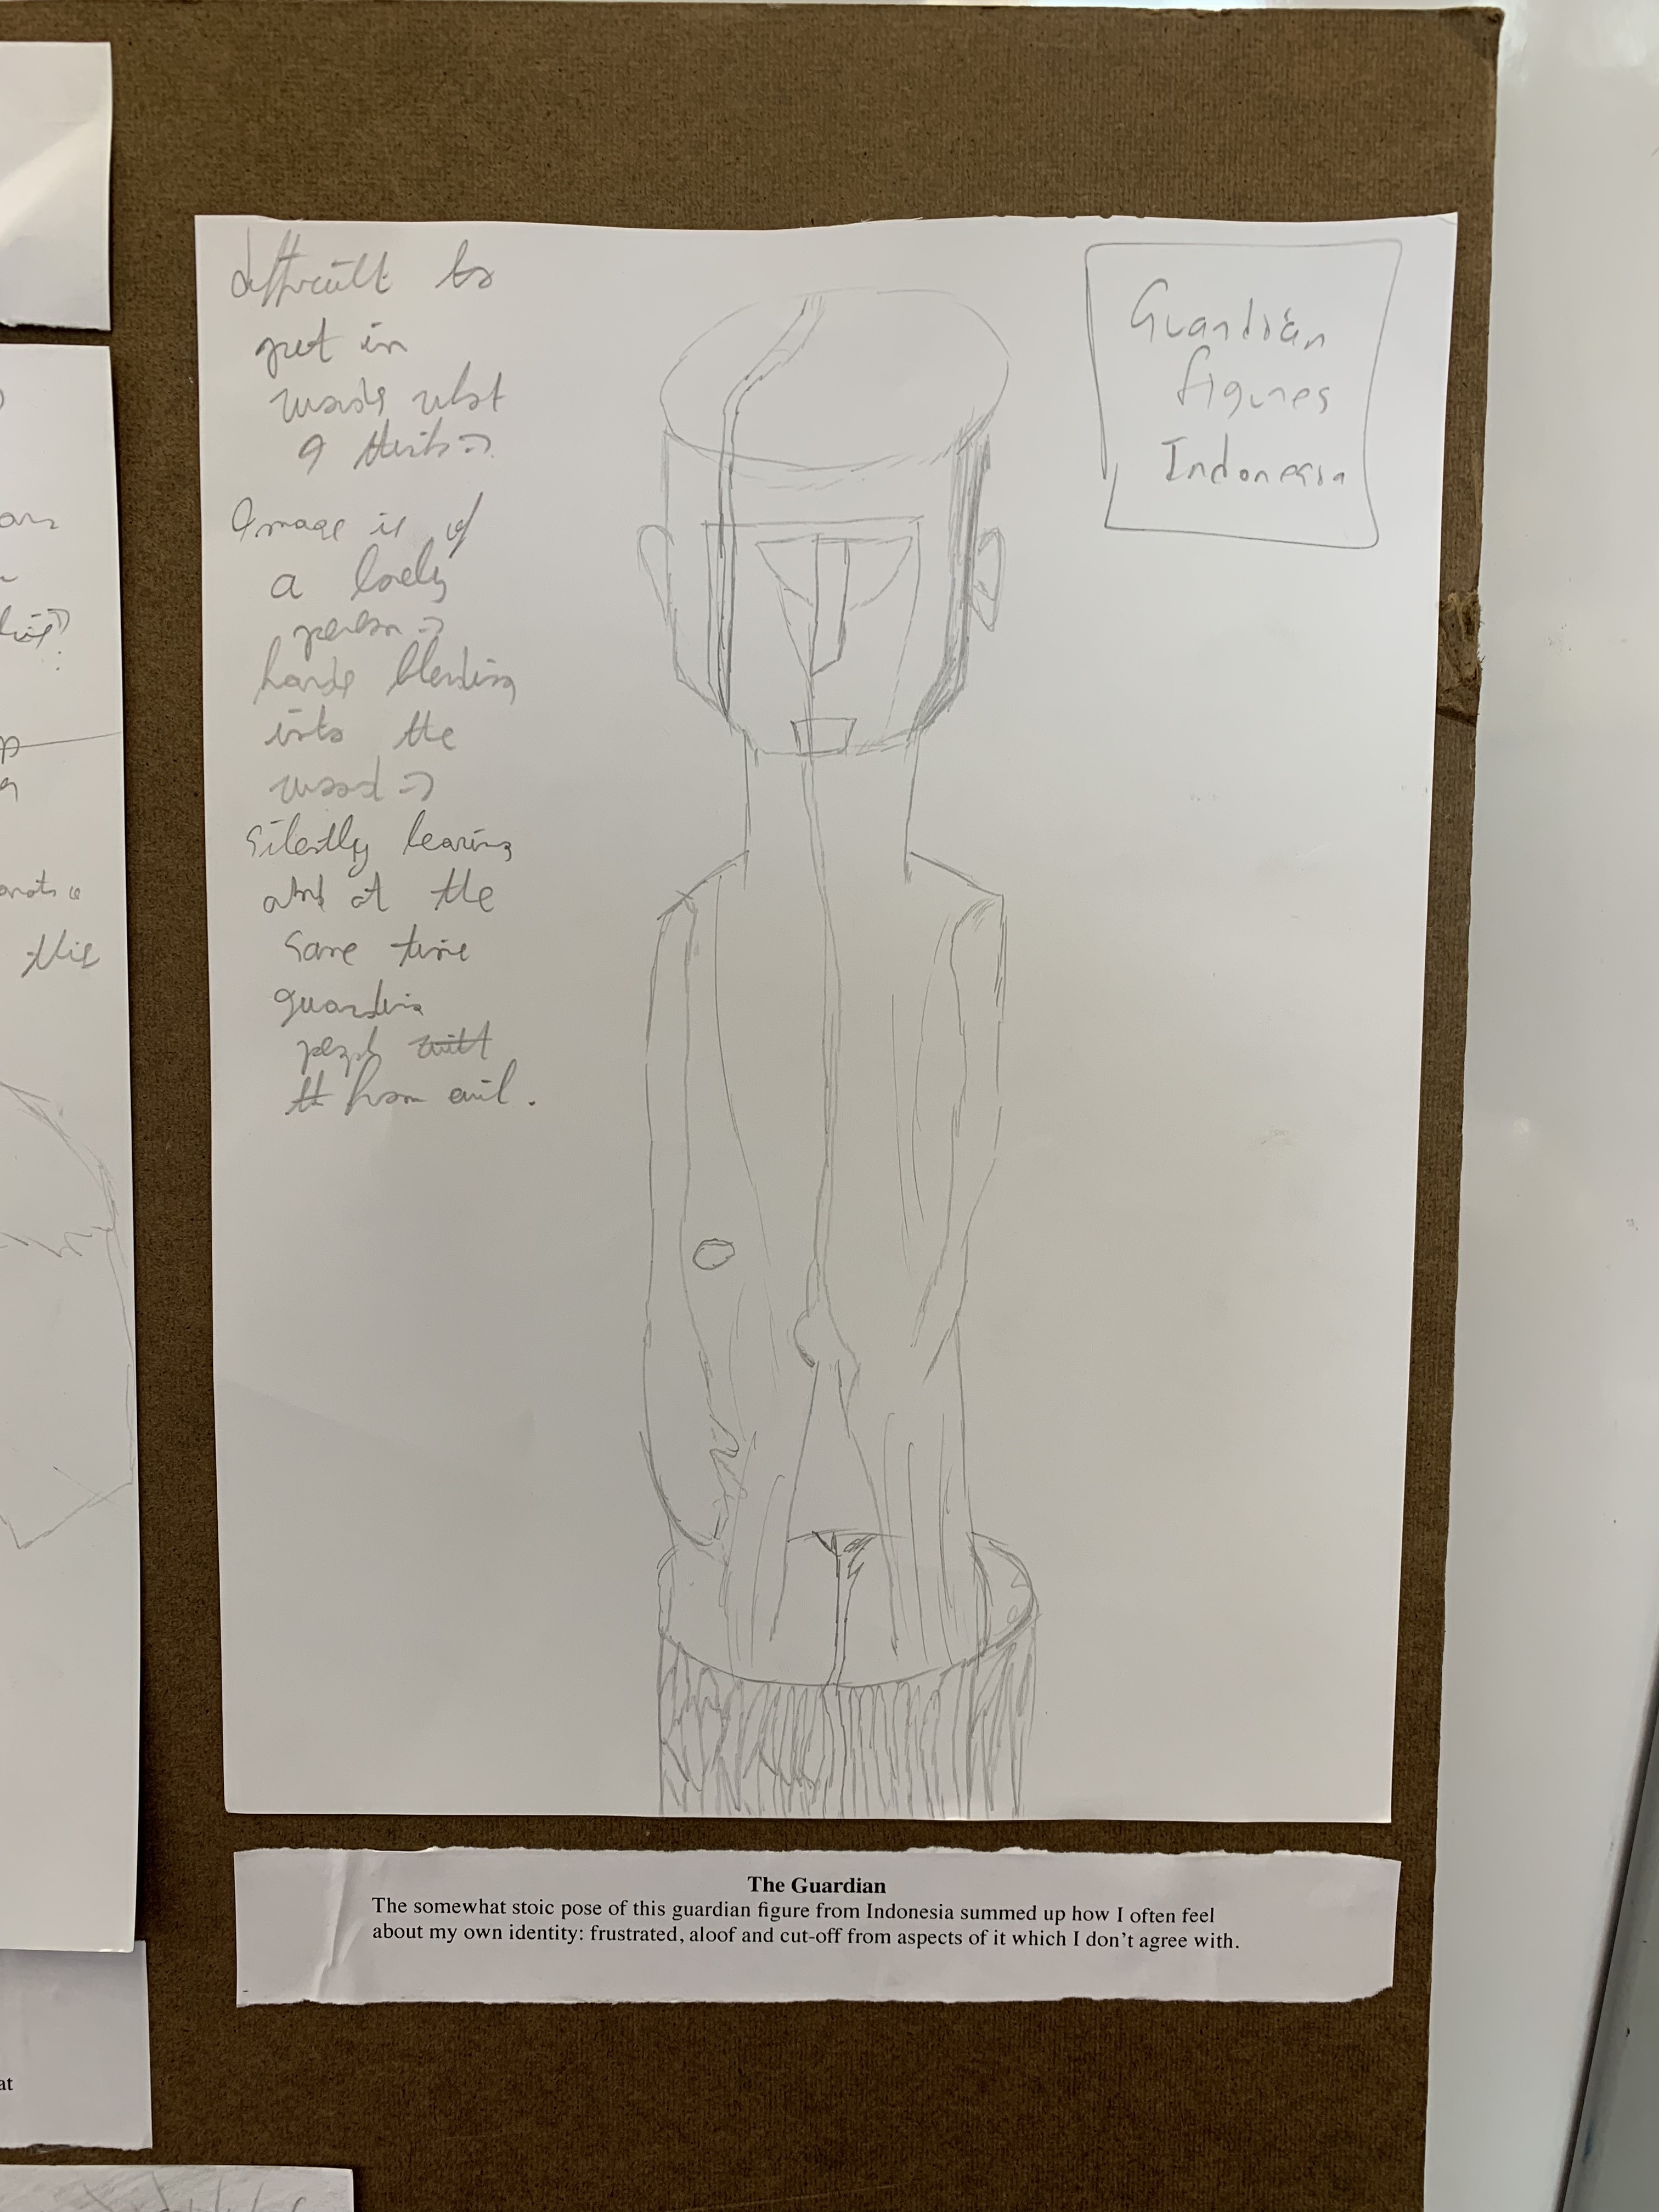 difficult to
put in
words what
I think →
Image is of
a lonely
person →
hands blending
into the
wood →
Silently leaning
and at the
same time
guarding
people
from evil.
Guardian
figures
Indonesia
this
The Guardian
The somewhat stoic pose of this guardian figure from Indonesia summed up how I often feel
about my own identity: frustrated, aloof and cut-off from aspects of it which I don't agree with.
at